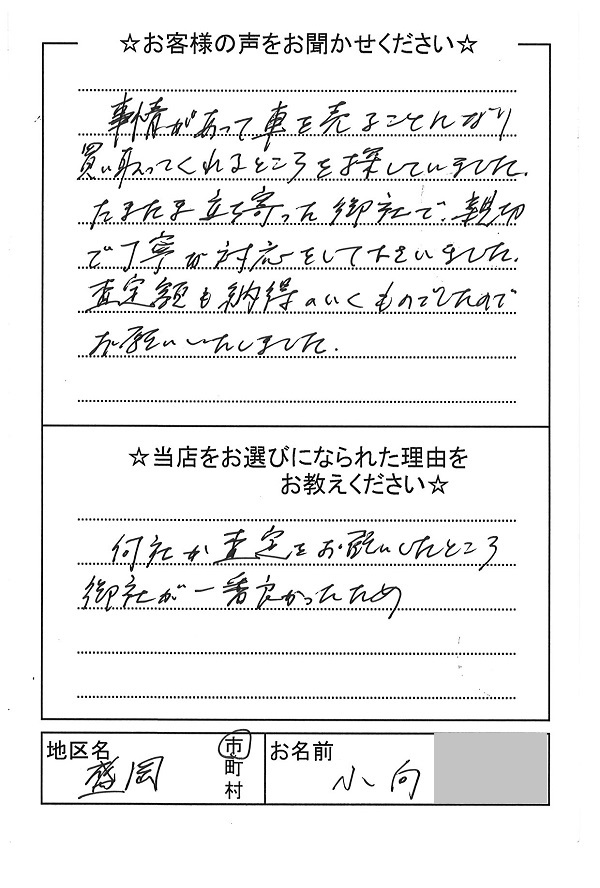 ☆お客様の声をお聞かせください☆
事情があって車を売ることになり
買い取ってくれるところを探していました。
たまたま立ち寄った御社で、親切
で丁寧な対応をして下さいました。
査定額も納得のいくものでしたので
お願いいたしました。
☆当店をお選びになられた理由を
お教えください☆
何社か査定をお願いしたところ
御社が一番良かったため
地区名
盛岡
市
町
村
お名前
小向